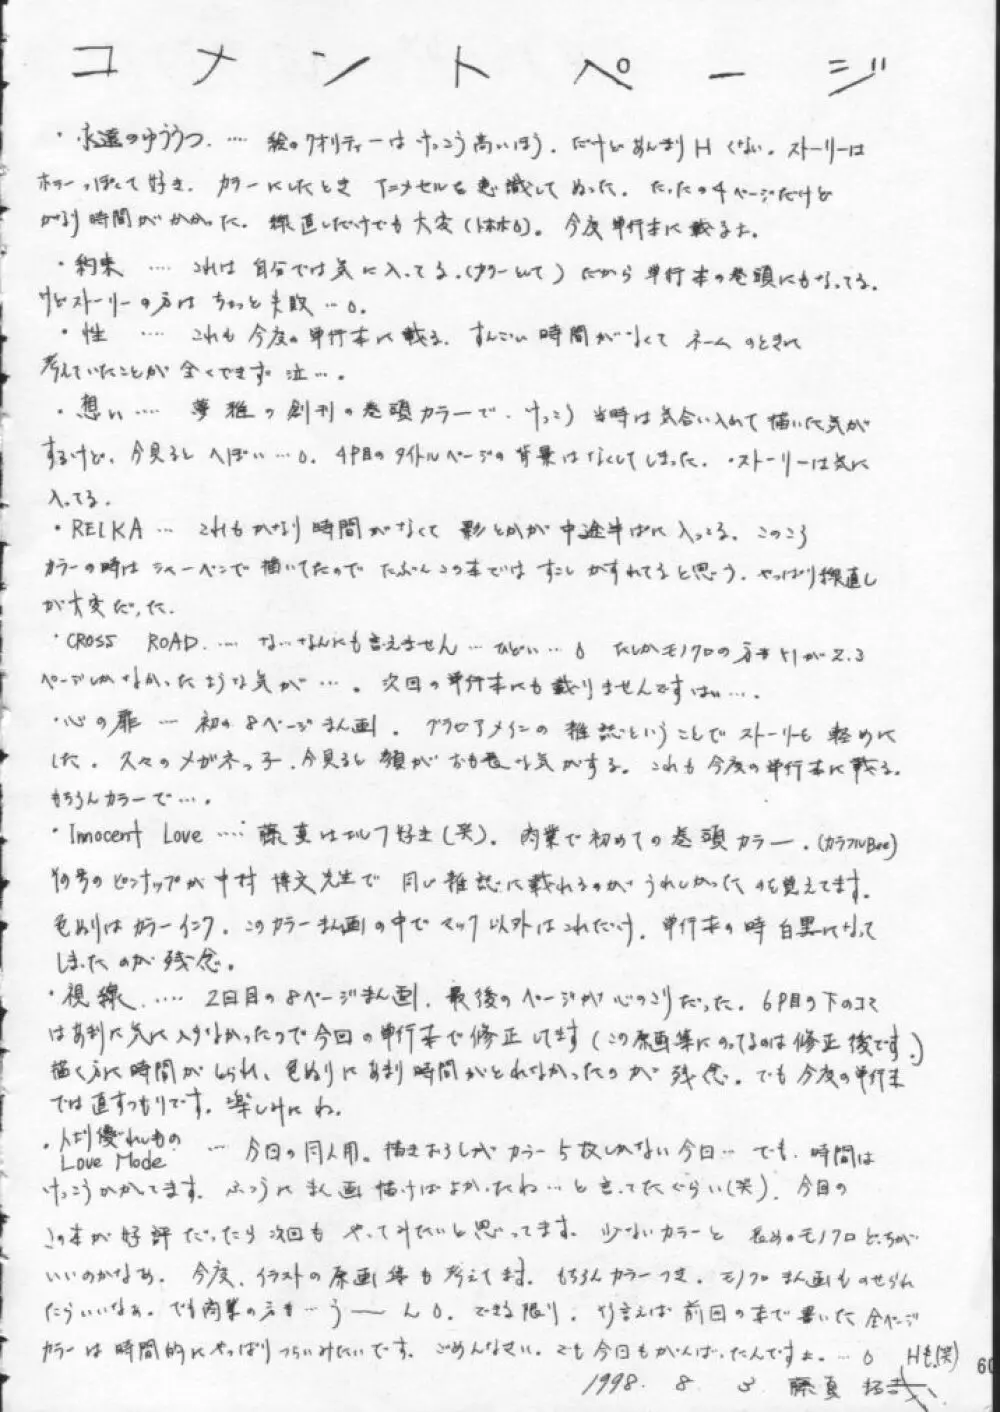 コメントページ
・永遠のゆううつ.…. 絵のクオリティーはけっこう高いほう. だけどあんまりHくない. ストーリーは
ホラーっぽくて好き. カラーにしたときアニメセルを意識してぬった. たったの4ページだけど
かなり時間がかかった. 線直しだけでも大変(トホホ). 今度単行本に載るよ.
・約束 …. これは自分では気に入ってる.(カラーとして) だから単行本の巻頭にもなってる.
けどストーリーの方はちょっと失敗….
・性 …. これも今度の単行本に載る. すんごい時間がなくてネームのときに
考えていたことが全くできず 泣….
・想い…. 夢雅の創刊の巻頭カラーで. けっこう当時は気合い入れて描いた気が
するけど. 今見るとへぼい…. 4P目のタイトルページの背景はなくしてしまった. ・ストーリーは気に
入ってる.
・REIKA … これもかなり時間がなくて影とかが中途半ぱに入ってる. このころ
カラーの時はシャーペンで描いてたのでたぶんこの本ではすこしかすれてると思う. やっぱり線直し
が大変だった.
・CROSS ROAD. …. な…なんにも言えません…ひどい… たしかモノクロの方も
ページしかなかったような気が…. 次回の単行本にも載りませんですはい….
・心の扉 … 初の8ページまん画. グラビアメインの雑誌ということでストーリーも軽めに
した. 久々のメガネっ子. 今見ると顔がおも長な気がする. これも今度の単行本に載る.
もちろんカラーで….
・Innocent Love …. 藤真はエルフ好き(笑). 商業で初めての巻頭カラー.(カラフルBee)
その号のピンナップが中村博文先生で同じ雑誌に載れるのがうれしかったのを覚えてます.
色ぬりはカラーインク. このカラーまん画の中でマック以外はこれだけ. 単行本の時白黒になって
しまったのが残念。
・視線. …. 2回目の8ページまん画. 最後のページが心のこりだった. 6P目の下のコマ
はあまり気に入らなかったので今回の単行本で修正してます(この原画集にのってるのは修正後です.)
描く方に時間がとられ、色ぬりにあまり時間がとれなかったのが残念. でも今度の単行本
では直すつもりです. 楽しみにね.
・人より優れしもの
Love Mode … 今回の同人用。描きおろしがカラー5枚しかない今回… でも. 時間は
けっこうかかってます. ふつうにまん画描けばよかったね…と言ってたぐらい(笑). 今回の
この本が好評だったら次回もやってみたいと思ってます. 少ないカラーと長めのモノクロどっちが
いいのかなぁ. 今度、イラストの原画集も考えてます. もちろんカラーつき. モノクロまん画ものせられ
たらいいなぁ. でも商業の方も…う——ん. できる限り. 前回の本で書いた全ページ
カラーは時間的にやっぱりつらいみたいです. ごめんなさい. でも今回もがんばったんですよ.… Hも.(笑)
1998. 8. 3 藤真 拓哉
60